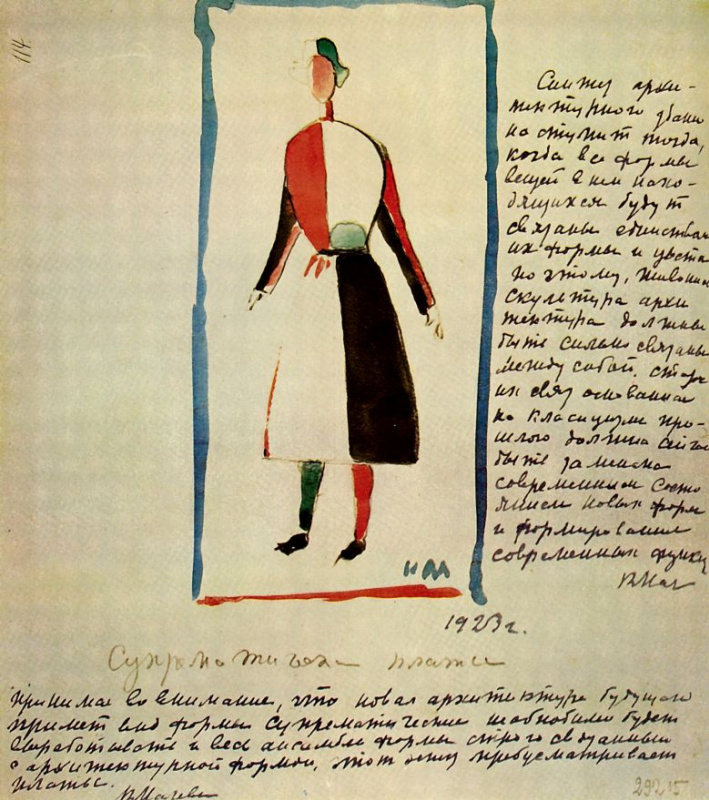 114.
архи-
тектурного здани
наступит тогда,
когда все формы
вещей в нем нахо-
дящихся будут
связаны единством
их формы и цвета
по этому, живопис
скулптура архи
тектура должны
быть сильно связаны
между собой.
их связ основанная
на класицизме про-
шлого должна
быть заменена
современным состо
янием новых форм
и формировании
современных функц
КМ
1923г.
Супрематическ платье
принимая во внимание, что новая архитектура будущаго
примет вид формы супрематические необходимо будет
выработать и весь ансамбль формы строго связанный
с архитектурной формой, этот эскиз предусматривает
платье.
КМалевич
29215